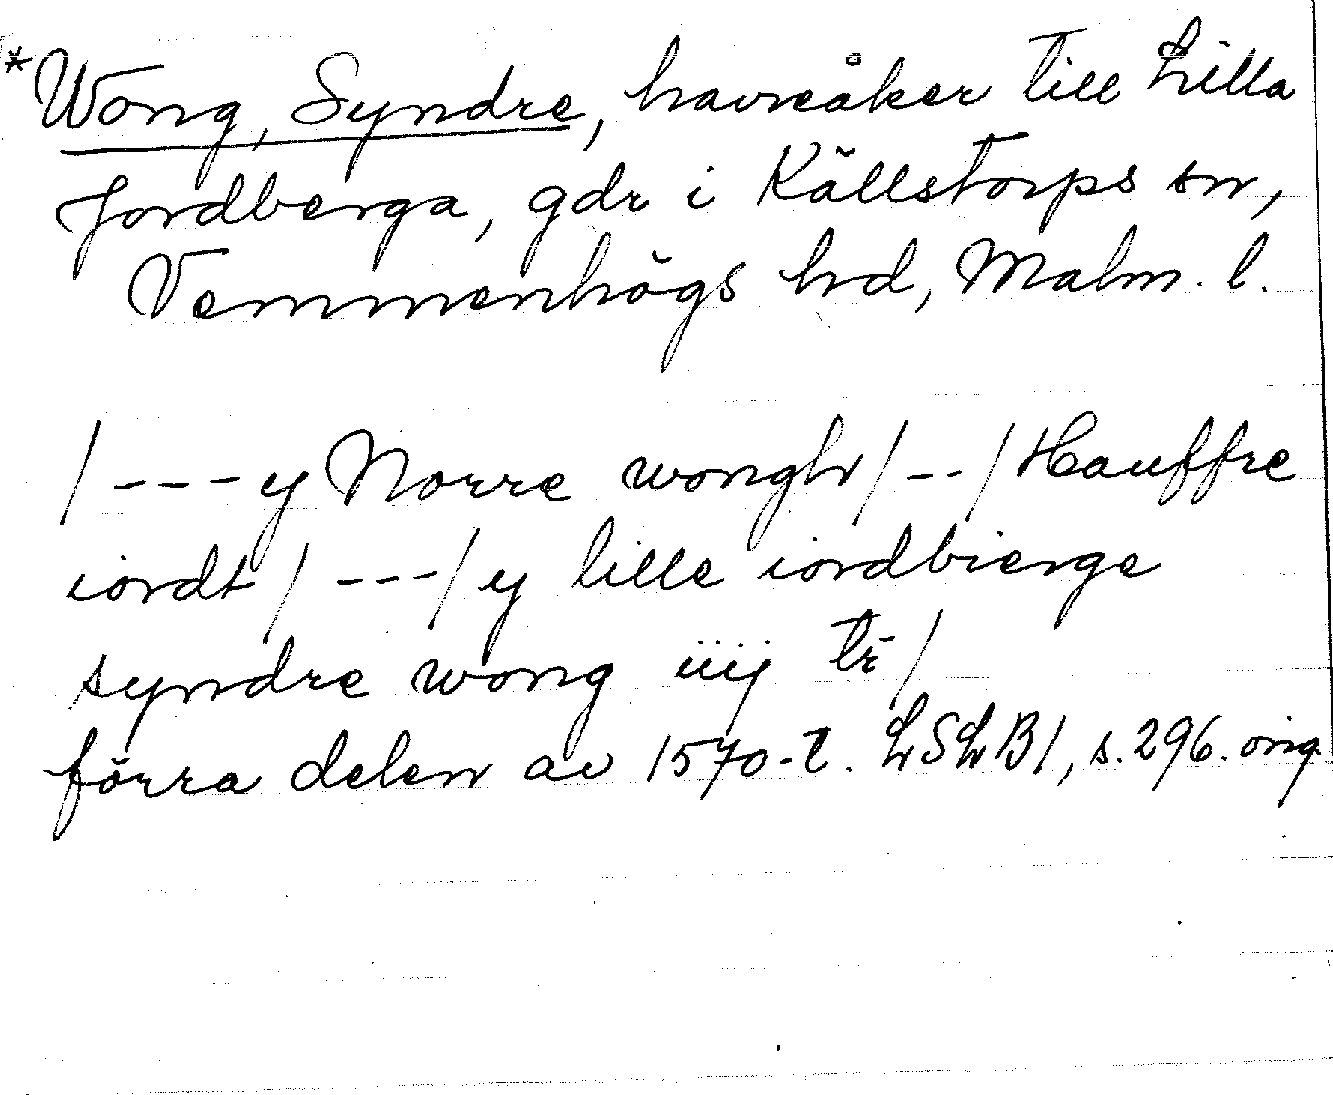 *Wong, Syndre, havreåker till Lilla
Jordberga, gdr i Källstorps sn,
Vemmenhögs hd, Malm. l.
/---y Norre wongh/--/Hauffre
iordt/---/y lille iordbierge
syndre wong iiij tr/
förra delen av 1570-t. LSLB1, s.296. orig.